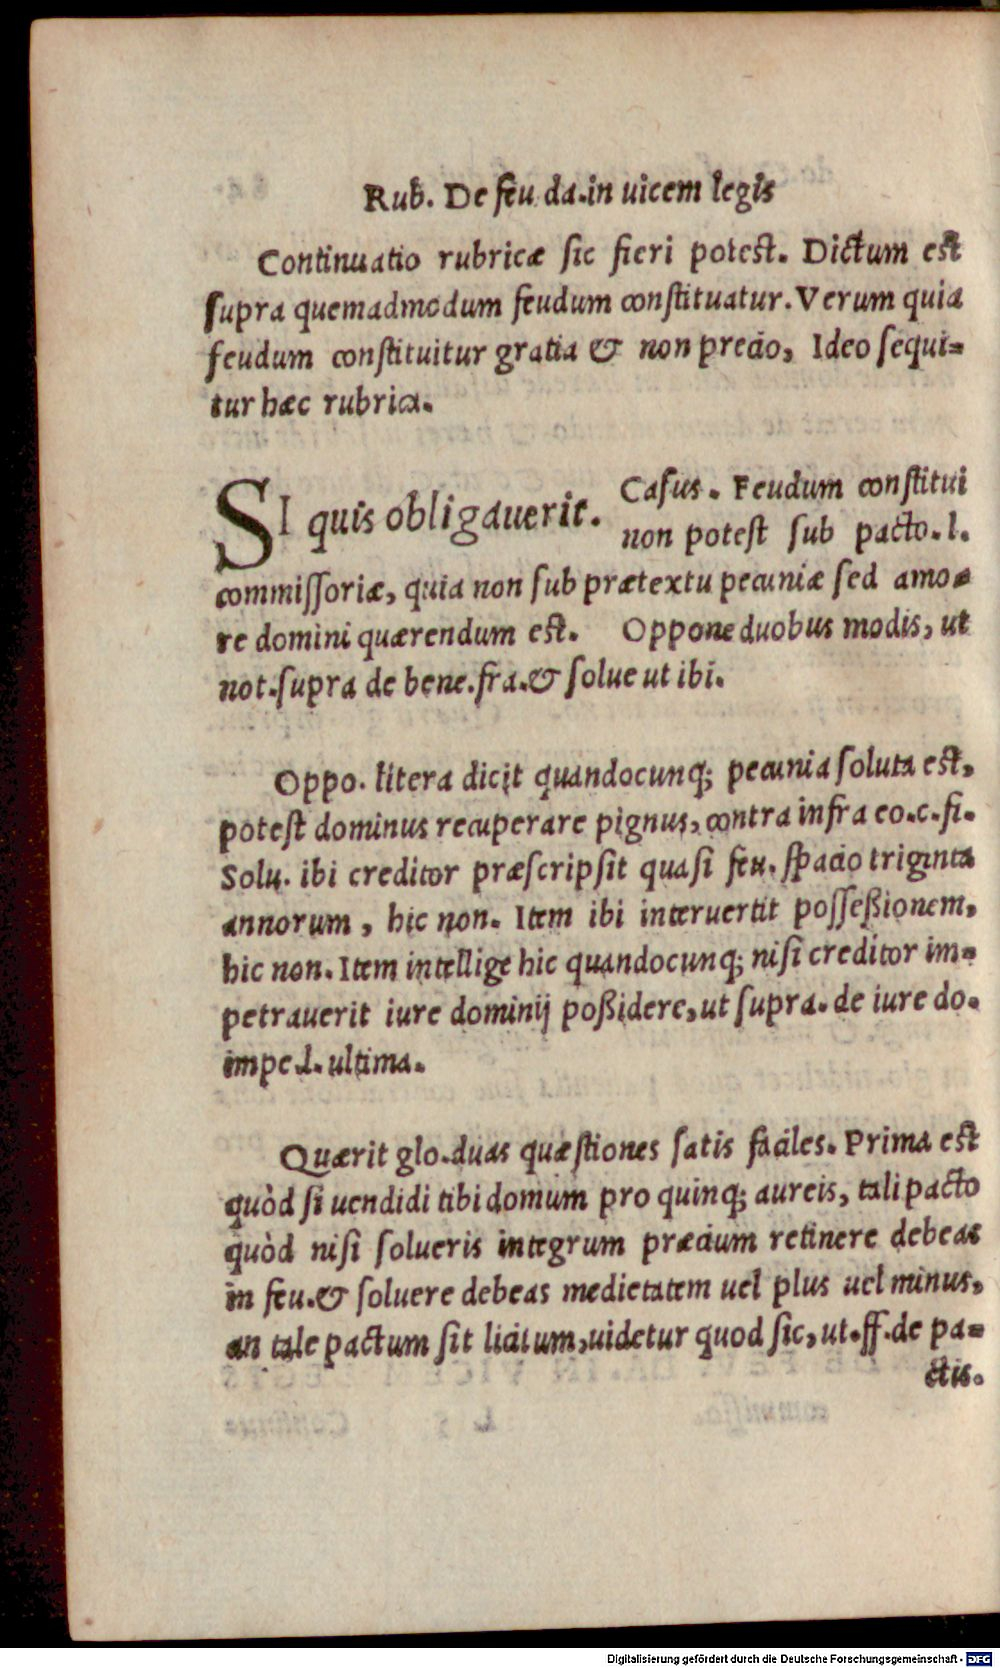 Rub. De feu da.in uicem legis
Continuatio rubricæ sic fieri potest. Dictum est
supra quemadmodum feudum constituatur. Verum quia
feudum constituitur gratia & non precio, Ideo sequi=
tur hæc rubrica.
SI quis obligauerit. Casus. Feudum constitui
non potest sub pacto.l.
commissoriæ, quia non sub prætextu pecuniæ sed amo=
re domini quærendum est. Oppone duobus modis, ut
not.supra de bene.fra.& solue ut ibi.
Oppo. litera dicit quandocunq; pecunia soluta est,
potest dominus recuperare pignus, contra infra eo.c.fi.
Solu. ibi creditor præscripsit quasi feu. spacio triginta
annorum, hic non. Item ibi interuertit possessionem,
hic non. Item intellige hic quandocunq; nisi creditor im=
petrauerit iure dominij possidere, ut supra. de iure do.
impe.l. ultima.
Quærit glo.duas quæstiones satis faciles. Prima est
quòd si uendidi tibi domum pro quinq; aureis, tali pacto
quòd nisi solueris integrum præcium retinere debeas
in feu.& soluere debeas medietatem uel plus uel minus,
an tale pactum sit licitum, uidetur quod sic, ut.ff.de pa=
ctis.
Digitalisierung gefördert durch die Deutsche Forschungsgemeinschaft - DFG